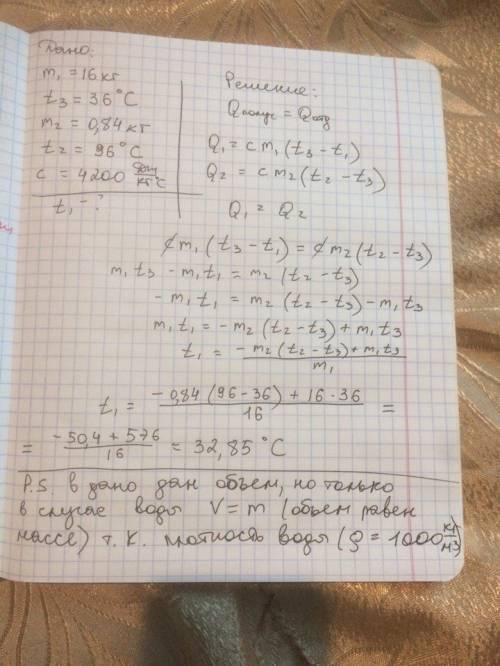 Дано:
m₁ = 16 кг
t₃ = 36°C
m₂ = 0,84 кг
t₂ = 96°C
c = 4200 Дж/кг°C
t₁ - ?
Решение:
Qполуч = Qотд
Q₁ = c m₁ (t₃ - t₁)
Q₂ = c m₂ (t₂ - t₃)
Q₁ = Q₂
c m₁ (t₃ - t₁) = c m₂ (t₂ - t₃)
m₁ t₃ - m₁ t₁ = m₂ (t₂ - t₃)
- m₁ t₁ = m₂ (t₂ - t₃) - m₁ t₃
m₁ t₁ = - m₂ (t₂ - t₃) + m₁ t₃
t₁ = (- m₂ (t₂ - t₃) + m₁ t₃) / m₁
t₁ = (-0,84 (96 - 36) + 16 · 36) / 16 =
= (-50,4 + 576) / 16 = 32,85 °C
P.S. в дано дан объем, но только
в случае воды V = m (объем равен
массе) т.к. плотность воды (ρ = 1000 кг/м3)